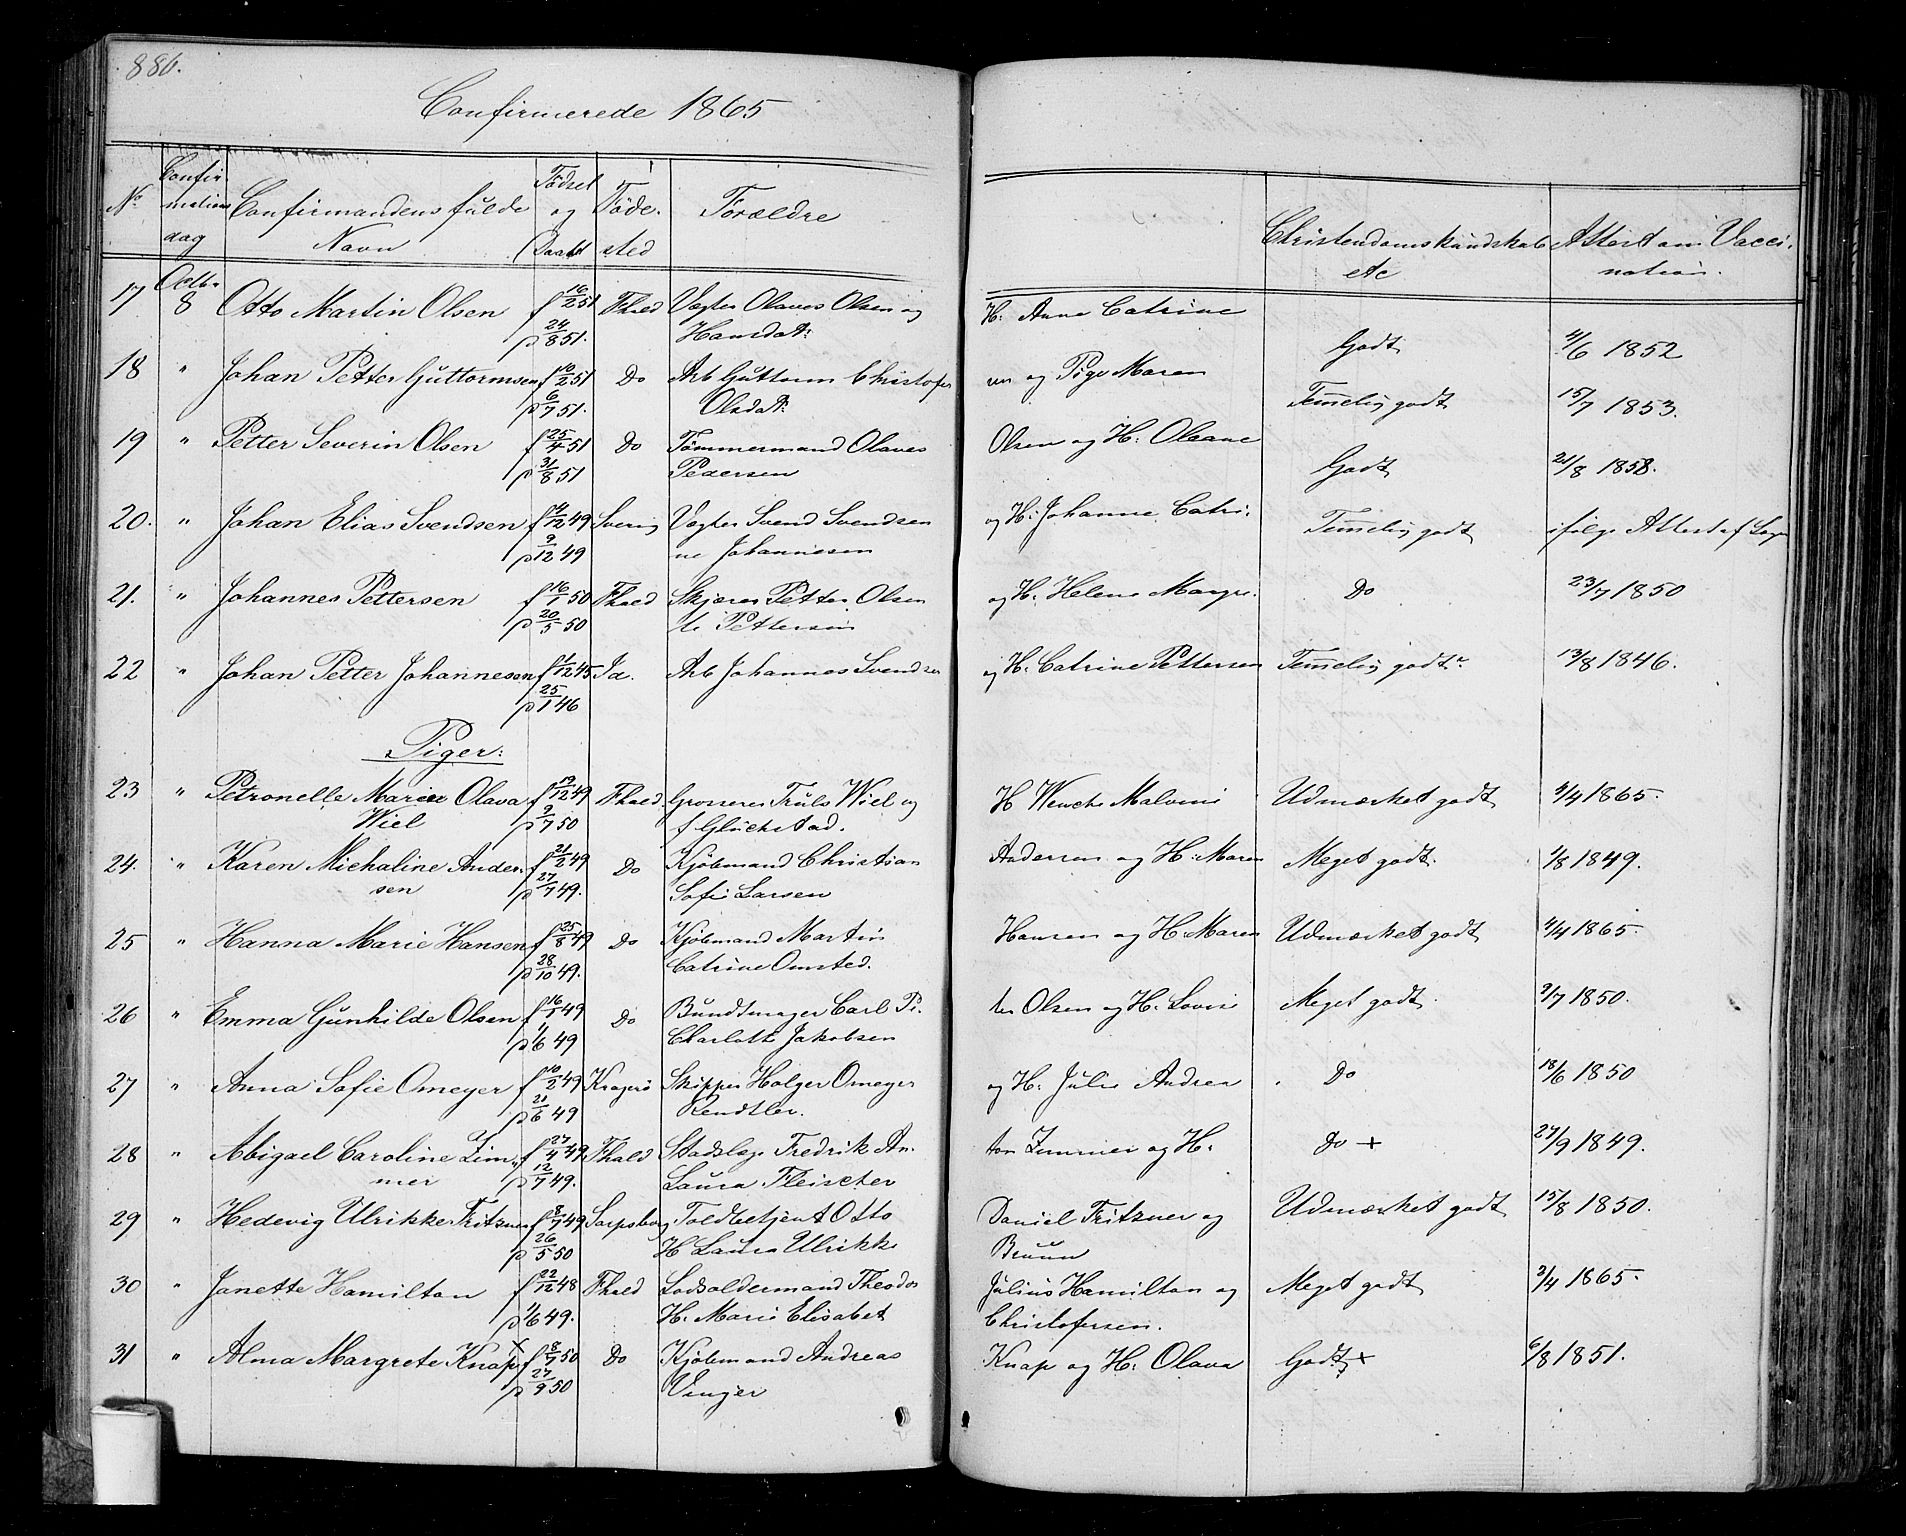 886.
Confirmerede 1865
No Confirmations dag Confirmandens fulde Navn Fødsel og Daab Fødested Forældre Christendomskundskab etc Attest om Vaccination.
17 Octbr 8 Otto Martin Olsen f 16/2 51 Fhald Vegter Olaves Olsen og H: Anne Catrine
p 24/8 51. Hansdatt: Godt 4/6 1852
18 " Johan Petter Guttormsen f 10/2 51 Do Arb Guttorm Christofer sen og Pige Maren
p 6/7 51. Olsdatt: Temelig godt 15/7 1853.
19 " Petter Severin Olsen f 25/4 51 Do Tømmermand Olaves Olsen og H: Oleane
p 31/8 51 Pedersen Godt 21/8 1858.
20. " Johan Elias Svendsen f 4/12 49 Sverig Vegter Svend Svendsen og H: Johanne Catri: Temelig godt ifølge Attest af
p 9/12 49 ne Johannesen
21. " Johannes Pettersen f 16/1 50 Fhald Skjærer Petter Olsen og H: Helene Margre. Do 23/7 1850
p 20/5 50 te Pettersen
22 " Johan Petter Johannesen f 1/12 45 Id. Arb Johannes Svendsen og H: Catrine Pettersen Temelig godt 13/8 1846.
p 25/1 46
Piger:
23 " Petronelle Marie Olava f 19/12 49 Fhald. Grosserer Truls Wiel og H Wenche Malvine Udmærket godt 4/4 1865.
Wiel p 9/7 50 f Glückstad.
24. " Karen Michaline Ander: f 21/2 49 Do Kjøbmand Christian Andersen og H: Maren Meget godt. 1/8 1849.
sen p 27/7 49. Sofie Larsen
25 " Hanna Marie Hansen f 25/8 49 Do Kjøbmand Martin Hansen og H: Maren Udmærket godt 4/4 1865.
p 28/10 49. Catrine Omsted.
26 " Emma Gunhilde Olsen f 16/1 49 Do Bundtmager Carl Pe. ter Olsen og H: Lovise Meget godt. 9/7 1850.
p 1/6 49 Charlotte Jakobsen
27 " Anna Sofie Omeyer f 10/2 49 Kragerø Skipper Holger Omeyer og H: Julie Andrea Do 18/6 1850
p 21/6 49 Rendtler.
28 " Abigael Caroline Zim, f 27/4 49 Fhald Stadslæge Fredrik An. ton Zimmer og H: Do + 27/9 1849.
mer p 12/7 49. Laura Fleischer
29 " Hedevig Ulrikke Fritzner f 8/7 49 Sarpsborg Toldbetjent Otto Daniel Fritzner og Udmærket godt 15/8 1850.
p 26/5 50 H Laura Ulrikke Bruun
30 " Janette Hamilton f 22/12 48 Fhald Lodsoldermand Theodor Julius Hamilton og Meget godt 3/4 1865.
p 1/6 49. H: Marie Elisabet Christofersen.
31 " Alma Margrete Knap x f 8/7 50 Do Kjøbmand Andreas Knap og H: Olava Godt. x 6/8 1851.
p 27/9 50 Vinger